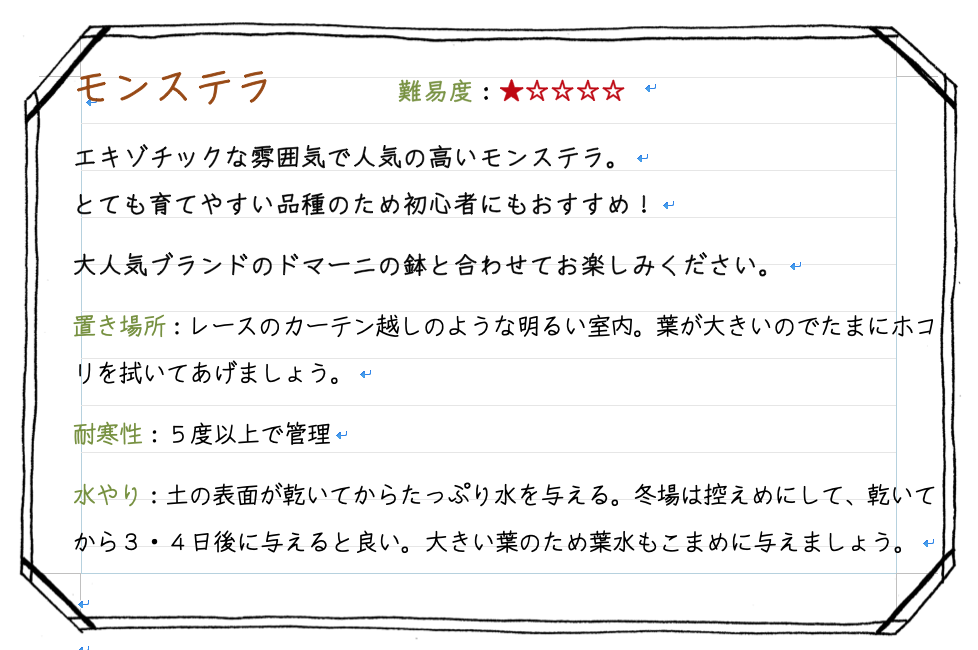 モンステラ 難易度：★☆☆☆☆
エキゾチックな雰囲気で人気の高いモンステラ。
とても育てやすい品種のため初心者にもおすすめ！
大人気ブランドのドマーニの鉢と合わせてお楽しみください。
置き場所：レースのカーテン越しのような明るい室内。葉が大きいのでたまにホコ
リを拭いてあげましょう。
耐寒性：５度以上で管理
水やり：土の表面が乾いてからたっぷり水を与える。冬場は控えめにして、乾いて
から３・４日後に与えると良い。大きい葉のため葉水もこまめに与えましょう。